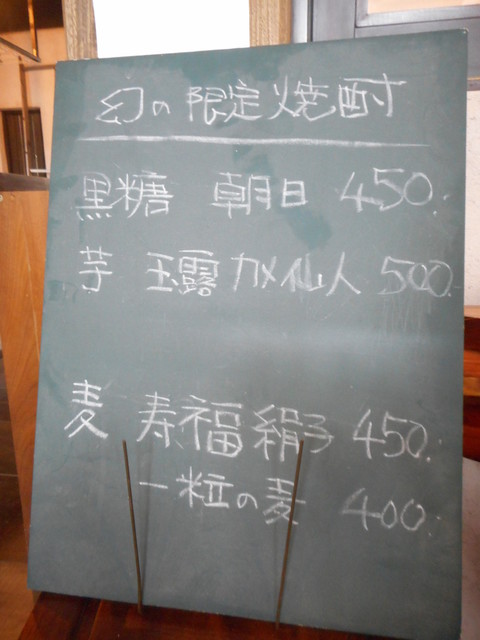 幻の限定焼酎
黒糖 朝日 450.
芋 玉露カメ仙人 500.
麦 寿福絹子 450.
一粒の麦 400.